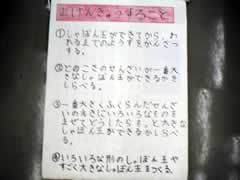 正けんきゅうすること
①しゃぼん玉ができてから、わ
れるまでのようすをかんさつ
する。
②どのこさのせんざいが一番大
きなしゃぼん玉ができるかしら
べる。
③一番大きくふくらんだせんざ
いの大きにいろいろなものを
まぜてどうしたらもっと大きな
しゃぼん玉ができるかをしら
べる。
④いろいろな形のしゃぼん玉や
すごく大きなしゃぼん玉をつくる。